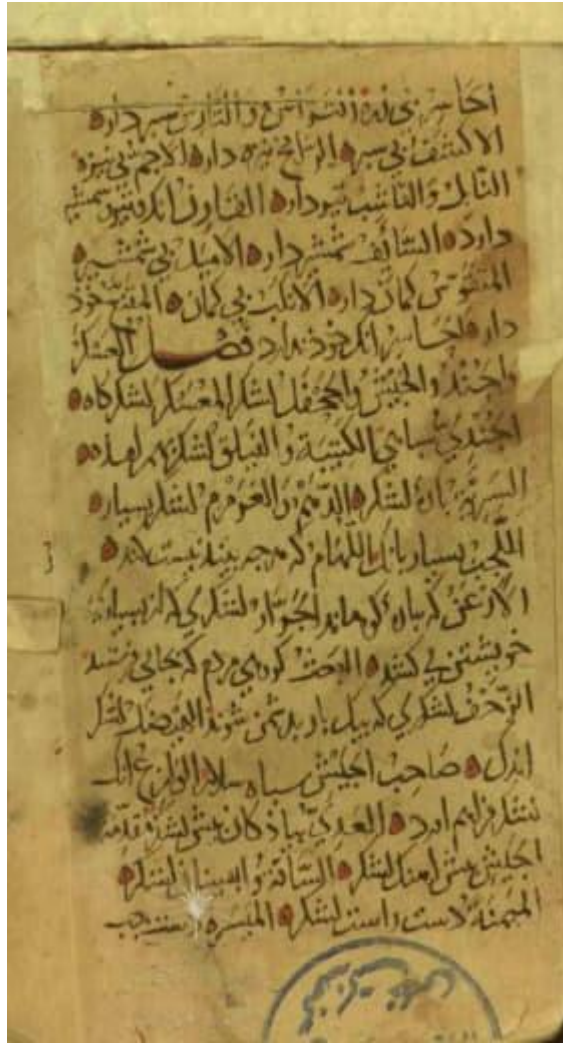 احاسر بی زره التراس والتارس سپردار
الاکشف بی سپر الرامح نیزه دار الاجم بی نیزه
النابل والناشب تیردار القارن انک تیر و شمشیر
دارد السائف شمشیردار الامیل بی شمشیر
المتقوس کمان دار الانکب بی کمان المقنع خود
دار احاسر انک خوذ ندارد فصل العسکر
واجند والجیش واجحفل لشکر المعسکر لشکرکاه
اجندی سپاهی الکتیبة والفیلق لشکر بهم امده
السریة پاره لشکر الدهم والعرمرم لشکر بسیار
اللجب بسیار بانک اللهام که هرجه بیند نیست کند
الارعن که پاره کوه ماند اجرار لشکری که از بسیاری
خویشتن می کشد البعث کروهی مردم که بجایی فرستند
الزحف لشکری که بیک بار بدشمن شوند لشکر
اندک صاحب اجیش سپاه سالار الوازع انک
لشکر فراهم اورد العدی پیاذکان پیش لشکر مقدمة
اجیش پیش اهنک لشکر الساقة لشکر
المیمنة دست راست لشکر المیسرة دست جب